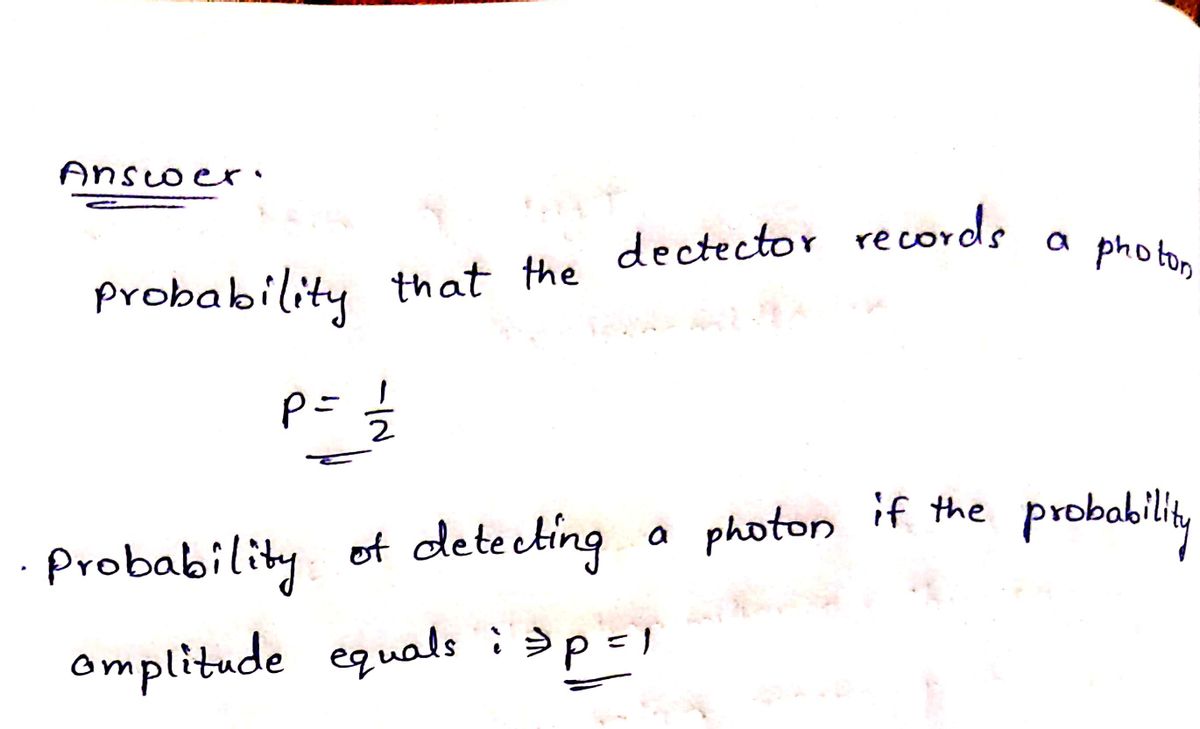 Answer.
probability that the dectector records a photon
P = 1/2
. Probability of detecting a photon if the probability
amplitude equals i ⇒ p = 1